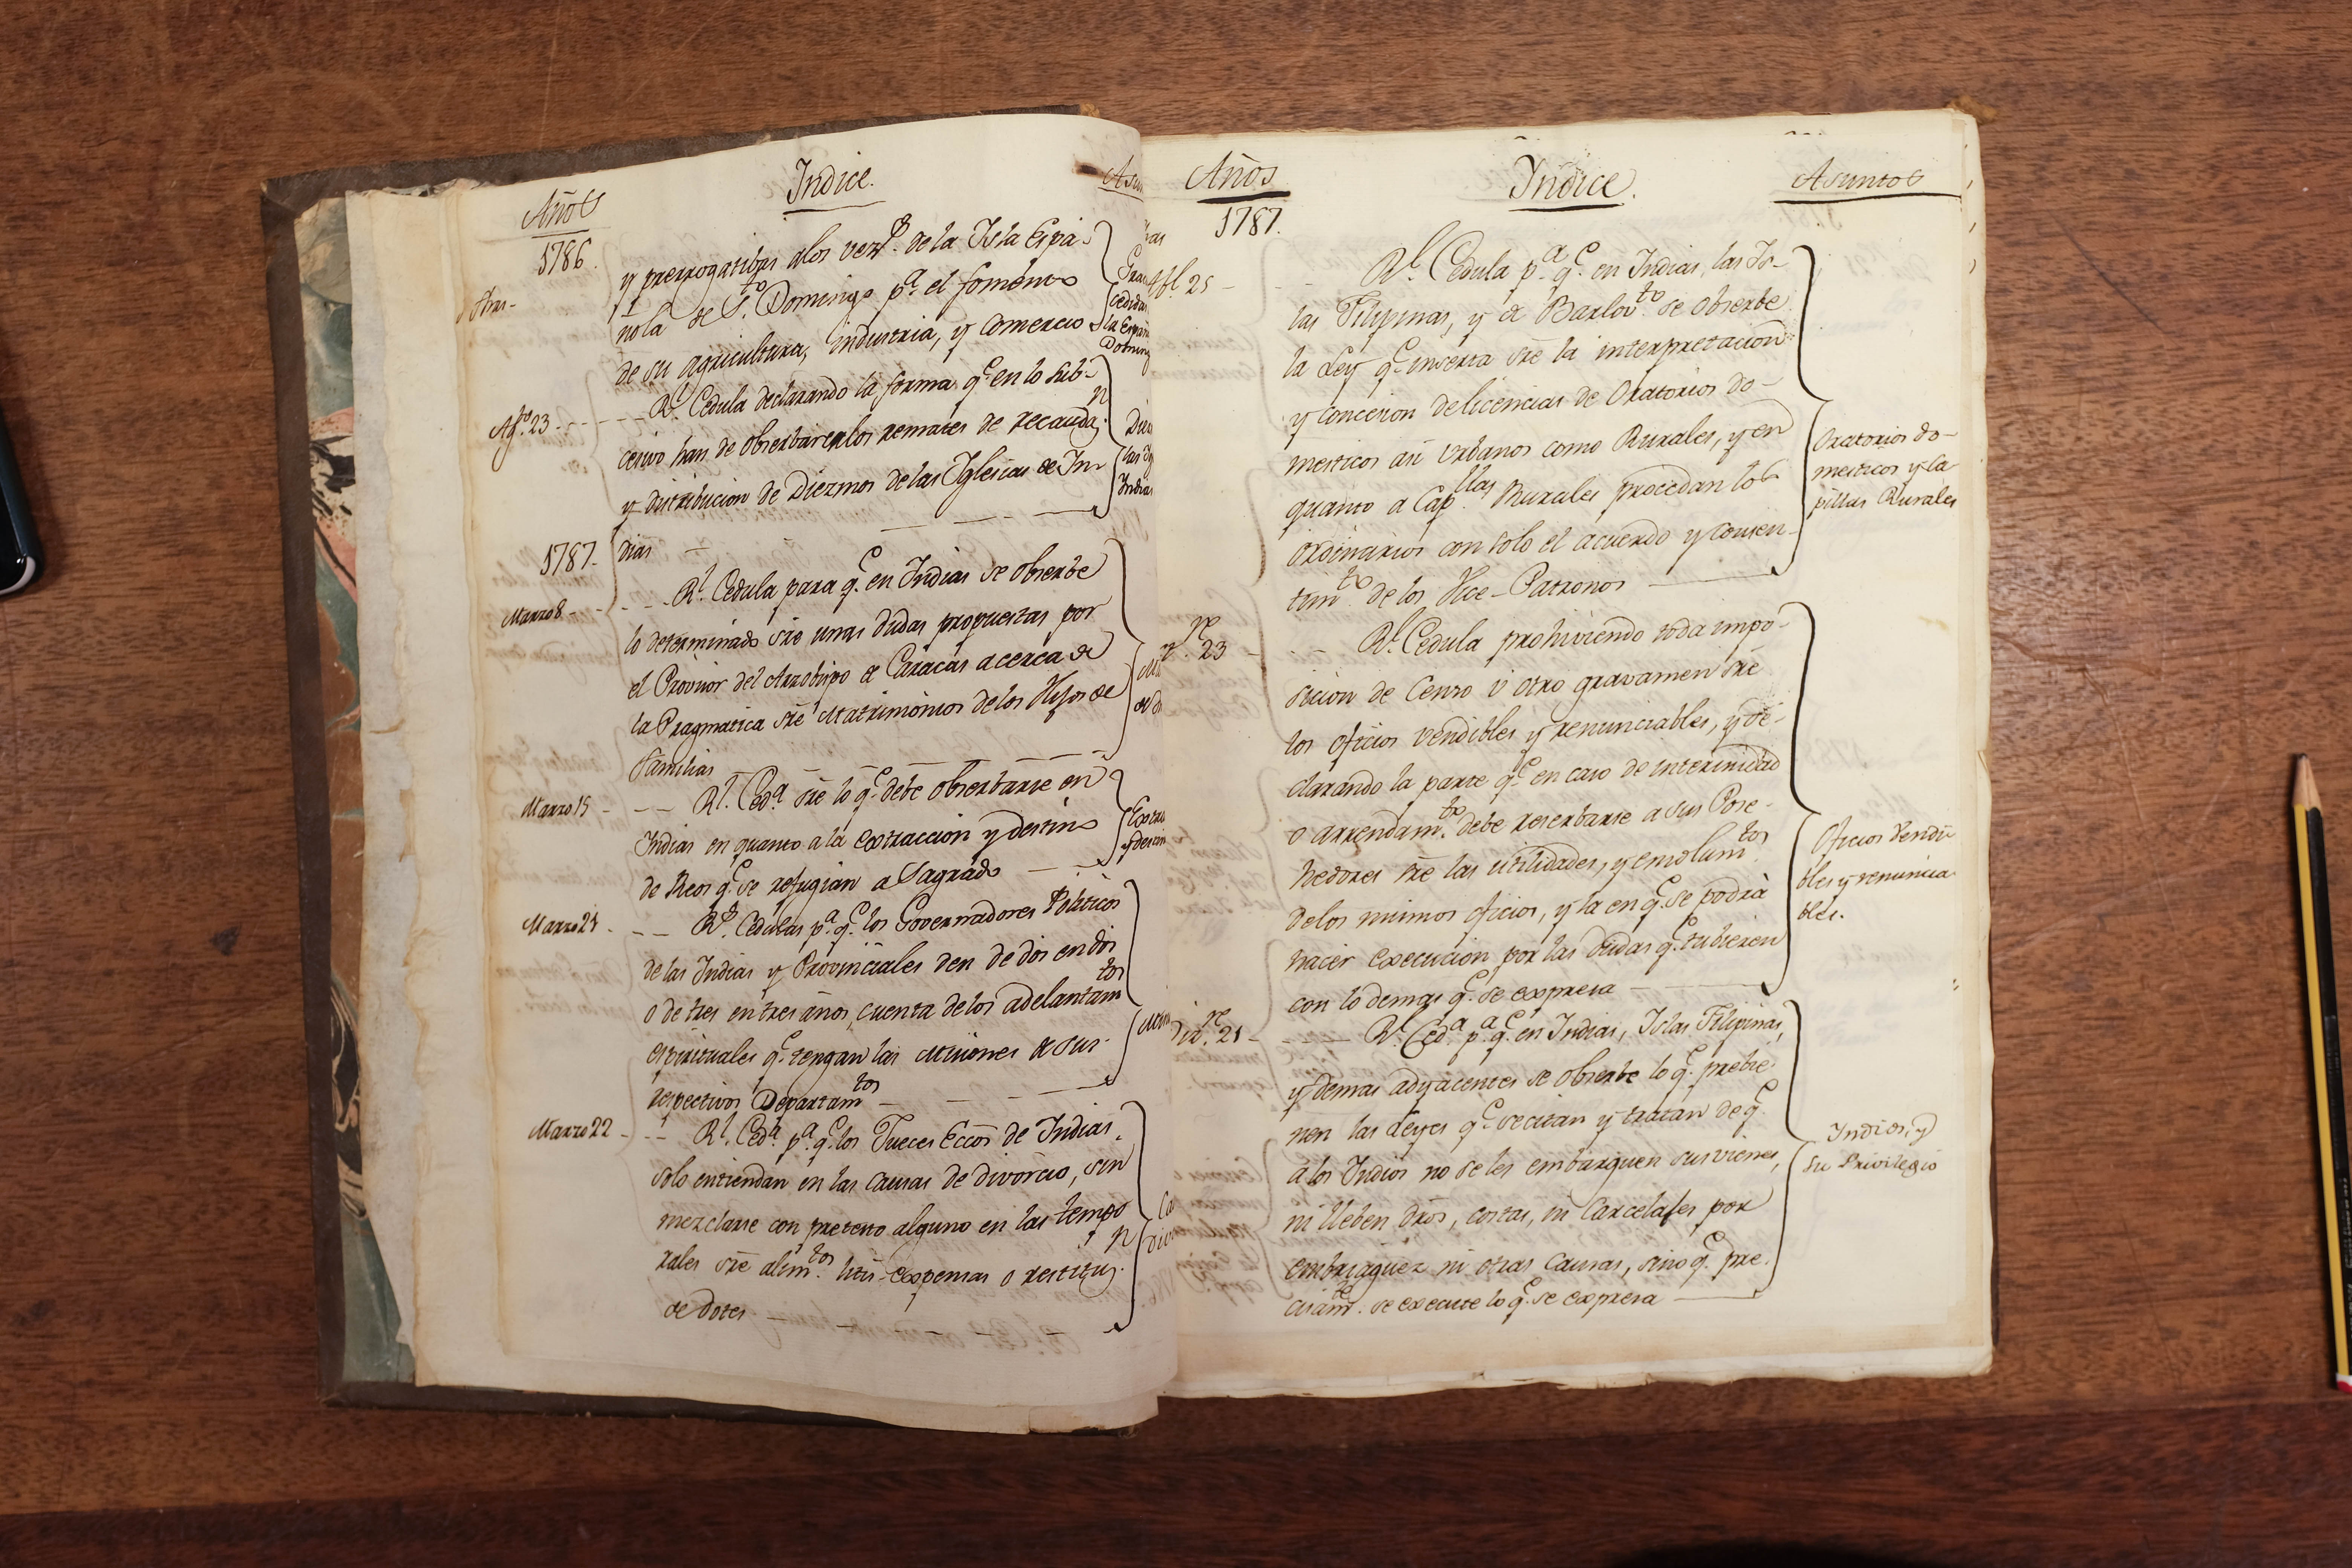 Años
Indice.
Asun
1786.
y prerrogatibas alos vez.s de la Isla Espa-
ñola de S.to Domingo p.a el fomento
de su agricultura, industria, y Comercio
Gra
cedidas
la Españ
Doming
Ag.to 23
R.l Cedula declarando la forma q.e en lo sub-
cesivo han de obserbarse los remates de recaudaz.n
y distribucion de Diezmos de las Iglesias de In-
dias
Diez
las Ig
Indias
1787.
Marzo 8
R.l Cedula para q.e en Indias se obserbe
lo determinado sre unas dudas propuestas por
el Provisor del Arzobispo de Caracas acerca de
la Pragmatica sre Matrimonios de los Hijos de
Familias
Marzo 15
R.l Ced.a sre lo q.e debe obserbarse en
Indias en quanto a la extraccion y destino
de Reos q.e se refugian a Sagrado
Extra
y destin
Marzo 21
R.s Cedulas p.a q.e los Governadores Politicos
de las Indias y Provinciales den de dos en dos
o de tres en tres años, cuenta de los adelantam.tos
espirituales q.e tengan las Misiones de sus
respectivos Departam.tos
Marzo 22
R.l Ced.a p.a q.e los Jueces Eccos de Indias,
solo entiendan en las causas de divorcio, sin
mezclarse con pretexto alguno en las tempo
rales sre alim.tos litis expensas o restituz.n
de dotes
Ca
div
Años
Indice.
Asuntos
1787.
25
R.l Cedula p.a q.e en Indias, las Is-
las Filipinas, y de Barlov.to se obserbe
la Ley q.e inserta sre la interpretacion
y concesion de licencias de Oratorios do-
mesticos asi urbanos como Rurales, y en
quanto a Cap.llas Rurales procedan los
ordinarios con solo el acuerdo y consen-
tim.to de los Vice-Patronos
Oratorios do-
mesticos y Ca
pillas Rurales
23
R.l Cedula prohiviendo toda impo-
sicion de Censo ú otro gravamen sre
los oficios vendibles y renunciables, y de-
clarando la parte q.e en caso de interinidad
o arrendam.to debe reserbarse a sus Pose-
hedores sre las utilidades, y emolum.tos
de los mismos oficios, y la en q.e se podrá
hacer execucion por las deudas q.e tubieren
con lo demas q.e se expresa
Oficios Vendi
bles y renuncia
bles.
Diz.re 21
R.l Ced.a p.a q.e en Indias, Islas Filipinas,
y demas adyacentes se obserbe lo q.e prebie-
nen las Leyes q.e se citan y tratan de q.e
a los Indios no se les embarguen sus vienes,
ni lleben dros, costas, ni Carcelajes por
embriaguez ni otras Causas, sino q.e pre-
cisam.te se execute lo q.e se expresa
Indios, y
su Privilegio